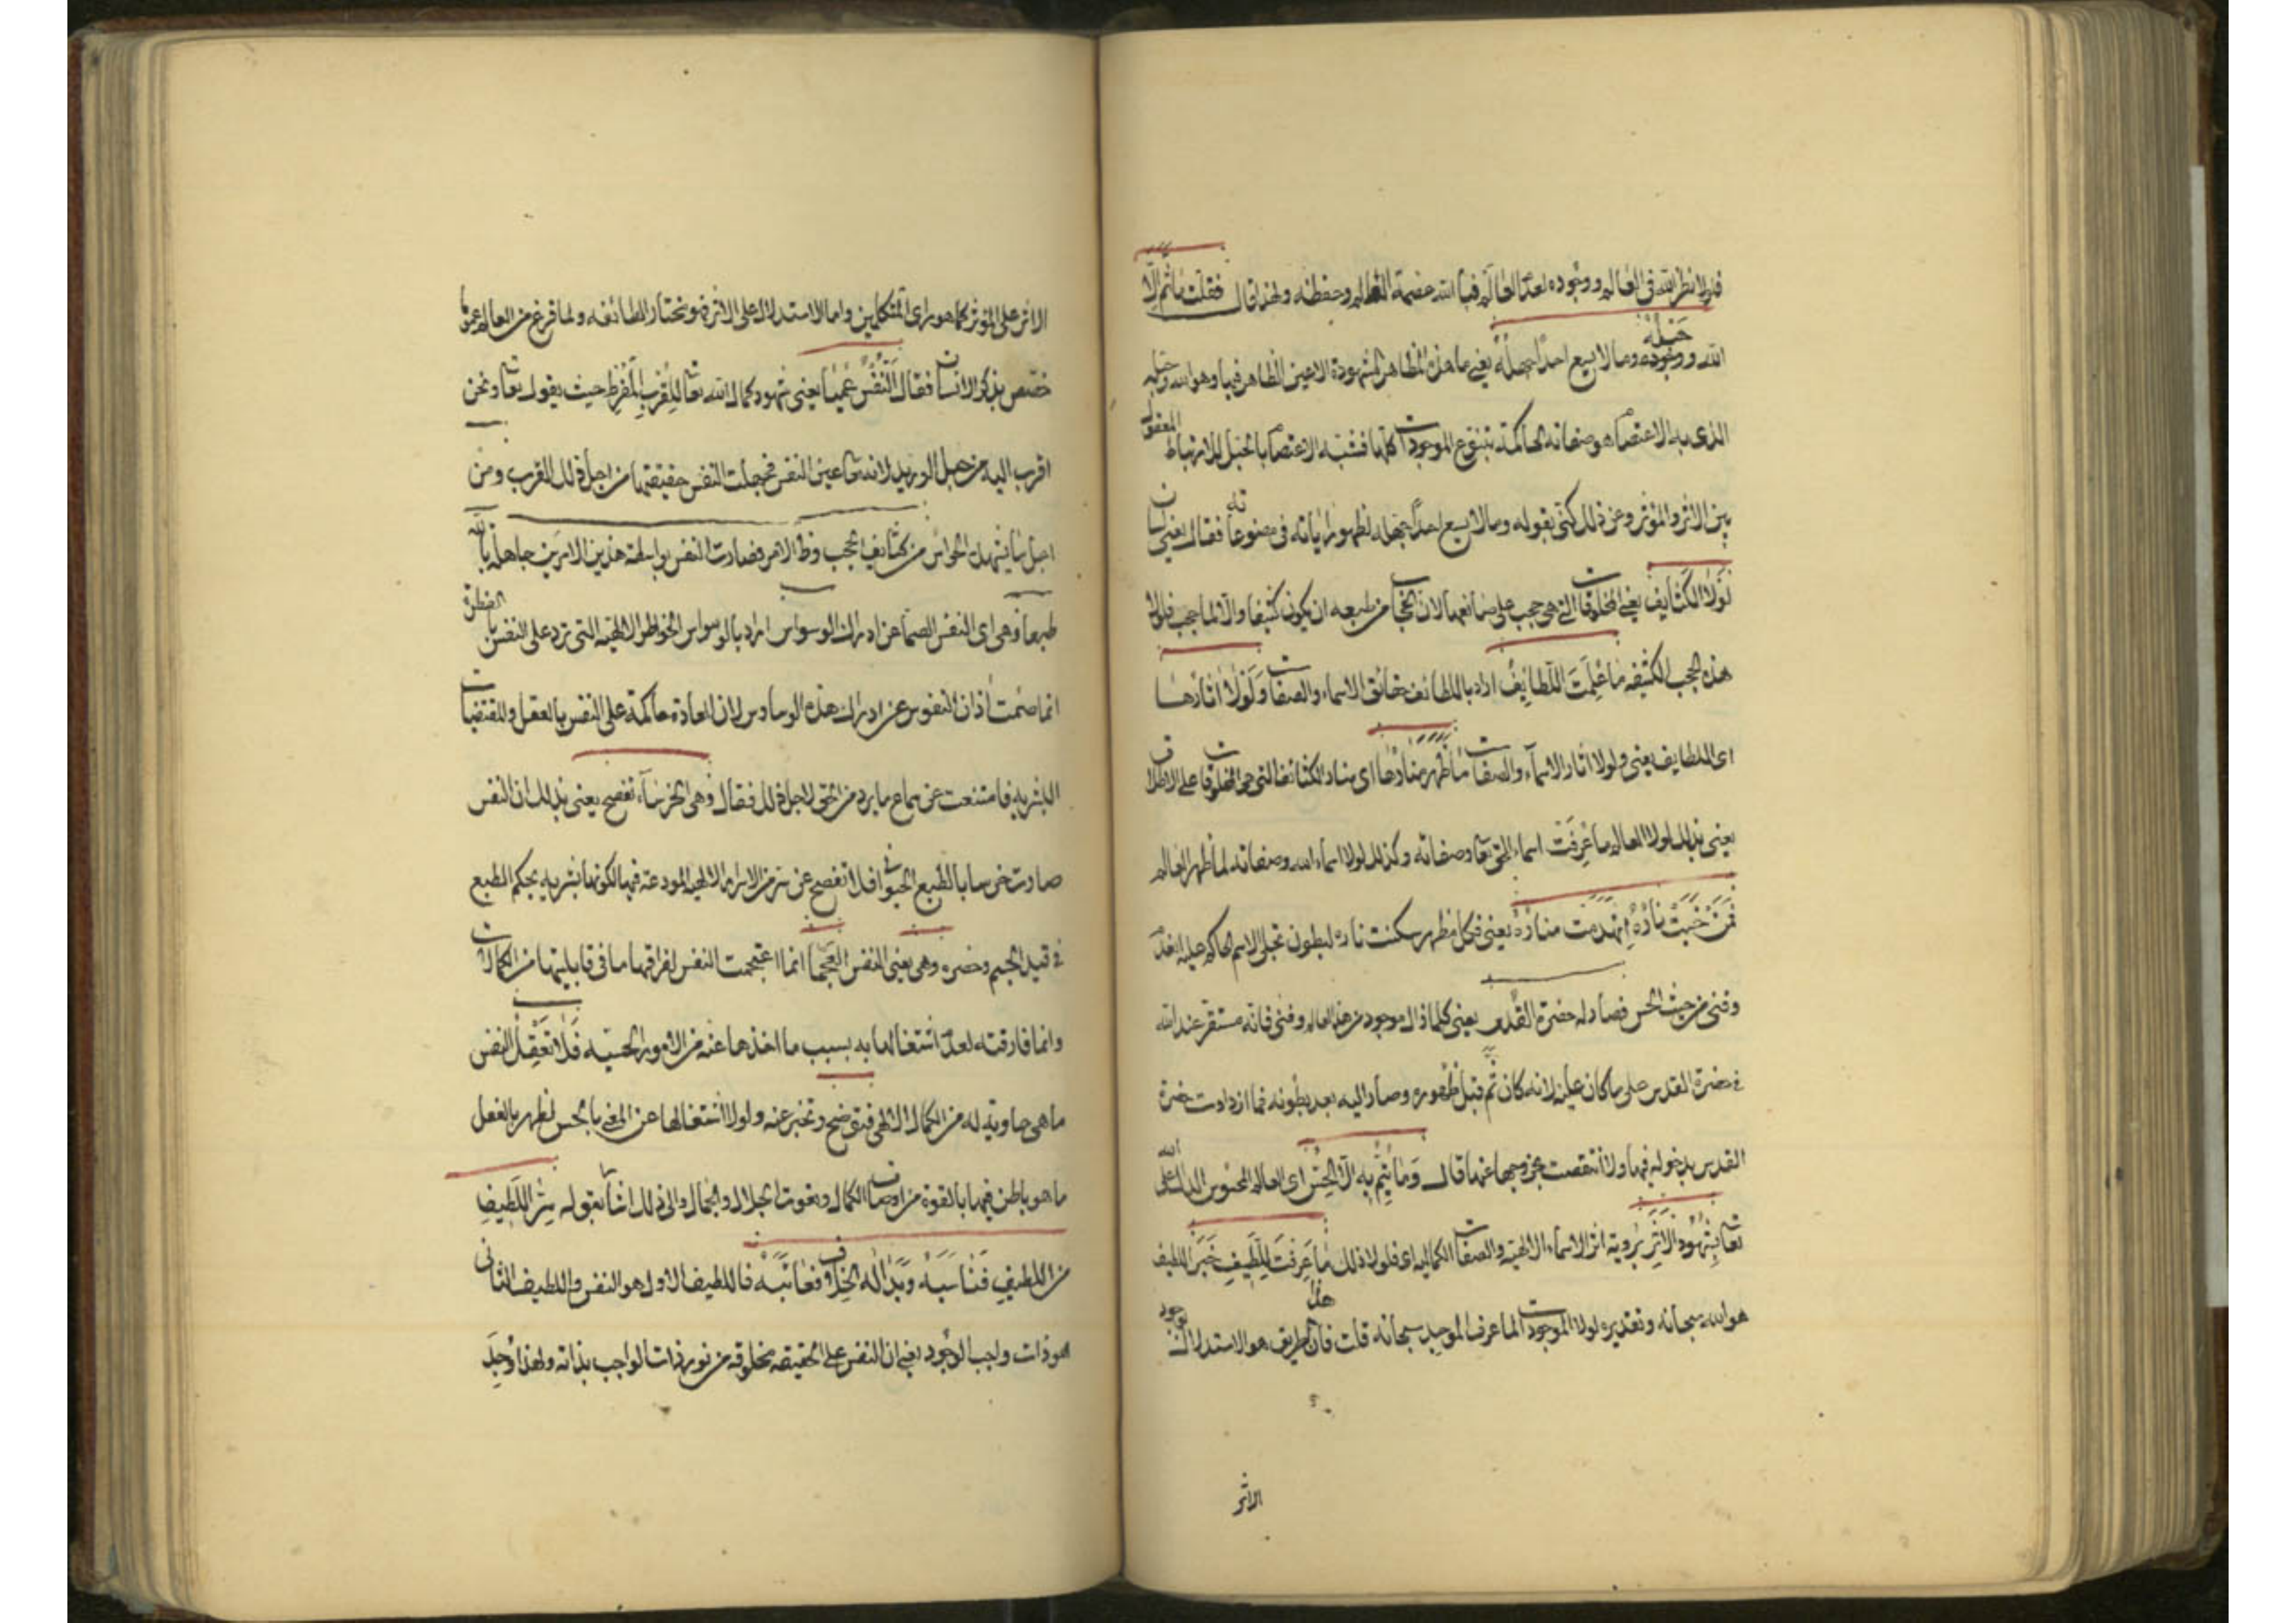 فلولا نظر الله في العالم ووجوده لعدم العالم فبالله عصمة العالم وحفظه ولهذا قال فقلت ما ثم إلا
الله ووجوده حبله وما لا يسع احدا جهله يعني ما هذه المظاهر المشهودة الاعين الظاهر فيها وهو الله وحبله
الذى به الاعتصام هو صفاته الحاكمة بتنوع الموجودات كلها فشبه الاعتصام بالحبل للارتباط المعقول
بين الأثر والمؤثر وعن ذلك كنى بقوله وما لا يسع احدا جهله لظهور اياته في مصنوعاته فقال يعني لسان
لولا الكثايف يعني المخلوقات التي هي حجب على صانعها لان الحجاب من طبعه ان يكون كثيفا والا لما حجب فلولا
هذه الحجب الكثيفه ما علمت اللطايف اراد باللطائف حقائق الاسماء والصفات ولولا اثارها
اى اللطايف يعني ولولا اثار الاسماء والصفات ما ظهر منارها اى منار الكثائف التي هي المخلوقات على الاطلاق
يعني بذلك لولا العالم ما عرفت اسماء الحق تعا وصفاته وكذلك لولا اسماء الله وصفاته لما ظهر العالم
فمن خبت ناره انهدمت مناره يعني فكل مظهر سكنت ناره لبطون تجلى الاسم الحاكم عليه انعدم
وفني من حيث الحس فصار له حضرة القدس يعني كلما زال موجود من هذا العالم وفني فانه مستقر عند الله
في حضرة القدس على ما كان عليه لانه كان ثم قبل ظهوره وصار اليه بعد بطونه فما ازدادت حضرة
القدس بدخوله فيها ولا انتقصت بخروجها عنها قال وما يتم به الا الحس اى العالم المحسوس الدال على الله
تعا بشهود الأثر برؤية اثر الاسماء الالهية والصفات الكماليه اى فلولا ذلك ما عرفت للطيف خبر اللطيف
هو الله سبحانه وتقديره لولا الموجودات لما عرف الموجد سبحانه قلت فان هذا طريق هو الاستدلال بوجود
الاثر
الاثر على المؤثر كما هو راى المتكلمين واما الاستدلال على الاثر فهو مختار الطائفه ولما فرغ من العالم عموما
خصص بذكر الانسان فقال النفس عميا يعني شهود كمال الله تعا للقرب المفرط حيث يقول تعا ونحن
اقرب اليه من حبل الوريد لانه تعا عين النفس فجهلت النفس حقيقتها من اجل ذلك القرب ومن
اجل ما يشهدن الحواس من كثايف الحجب وظ الامر فصارت النفس بواسطة هذين الامرين جاهلة بالله
طبعا وهى اى النفس الصما عن ادراك الوسواس اراد بالوسواس الخواطر الالهية التي ترد على النفس بالفطرة
انما صمت اذان النفوس عن ادراك هذه الوساوس لان العادة حاكمة على النفس بالعقل والمقتضيات
البشريه فامتنعت عن سماع ما يرد من الحق لاجل ذلك فقال وهى الخرساء تفصح يعني بذلك ان النفس
صارت خرسا بالطبع الحيواني فلا تفصح عن سر من الاسرار الالهيه المودعة فيها لكونها بشريه بحكم الطبع
في قيد الجسم وحصره وهى يعني النفس العجما انما اعتجمت النفس لفراقها ما في قابليتها من الكمالات
وانما فارقته لعدم اشتغالها به بسبب ما اخذها عنه من الامور الحسيه فلا تعقل النفس
ما هى حاوية له من الكمال الالهي فتوضح وتخبر عنه ولولا اشتغالها عن المعنى بالحس لظهر بالفعل
ما هو باطن فيها بالقوة من اوصاف الكمال ونعوت الجلال والجمال والى ذلك اشار بقوله سر اللطيف
من اللطيف فناسبه وبدا له الخلاف فعاتبه فاللطيف الاول هو النفس واللطيف الثاني
هو ذات واجب الوجود يعني ان النفس على الحقيقه مخلوقه من نور ذات الواجب بذاته ولهذا وجد